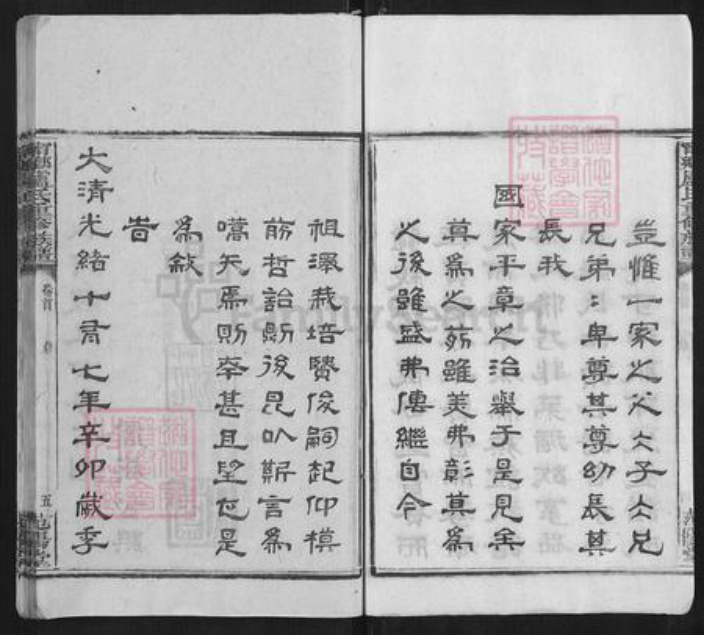 豈惟一家之父〻子〻兄
兄弟〻卑尊其尊幼長其
長我
國家平章之治舉于是見矣
莫為之前雖美弗彰莫為
之後雖盛弗傳繼自今
祖澤栽培賢俊嗣起仰模
前哲詒厥後昆以斯言為
嚆矢焉則幸甚且望也是
為敘
旹
大清光緒十有七年辛卯歲季
卷首
五
FamilySearch